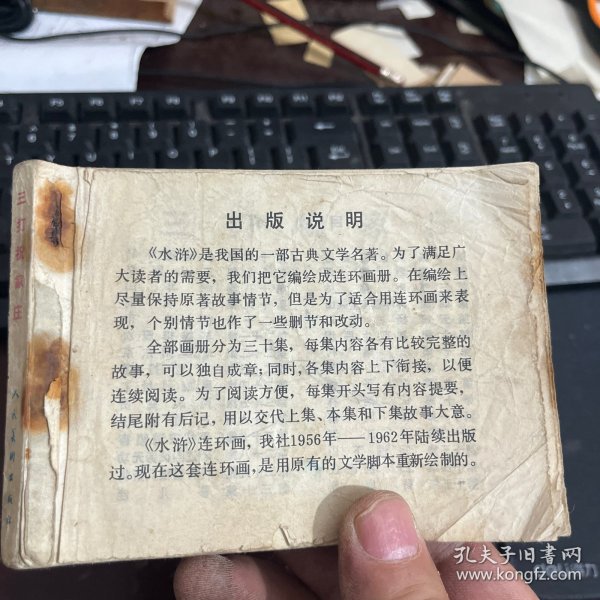 出版说明
《水浒》是我国的一部古典文学名著。为了满足广
大读者的需要，我们把它编绘成连环画册。在编绘上
尽量保持原著故事情节，但是为了适合用连环画来表
现，个别情节也作了一些删节和改动。
全部画册分为三十集，每集内容各有比较完整的
故事，可以独自成章；同时，各集内容上下衔接，以便
连续阅读。为了阅读方便，每集开头写有内容提要，
结尾附有后记，用以交代上集、本集和下集故事大意。
《水浒》连环画，我社1956年——1962年陆续出版
过。现在这套连环画，是用原有的文学脚本重新绘制的。
三打祝家庄
人民美术出版社
孔夫子旧书网
www.kongfz.com